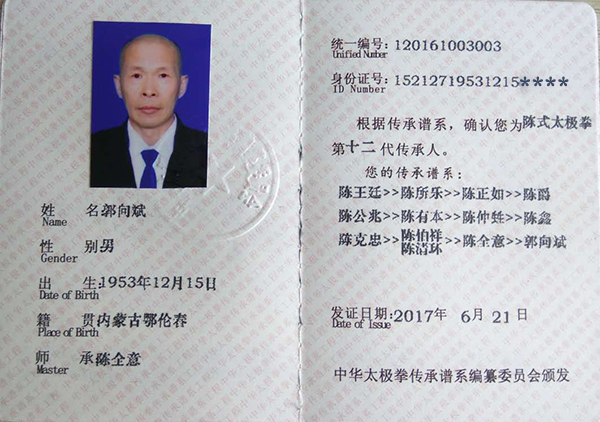 姓 名郭向斌
Name
性 别男
Gender
出 生:1953年12月15日
Date of Birth
籍 贯内蒙古鄂伦春
Place of Birth
师 承陈全意
Master
统一编号: 120161003003
Unified Number
身份证号: 15212719531215****
ID Number
根据传承谱系,确认您为陈式太极拳
第十二代传承人。
您的传承谱系:
陈王廷>>陈所乐>>陈正如>>陈爵
陈公兆>>陈有本>>陈仲甡>>陈鑫
陈克忠>>陈伯祥 陈清环>>陈全意>>郭向斌
发证日期:2017年 6月 21日
Date of Issue
中华太极拳传承谱系编纂委员会颁发